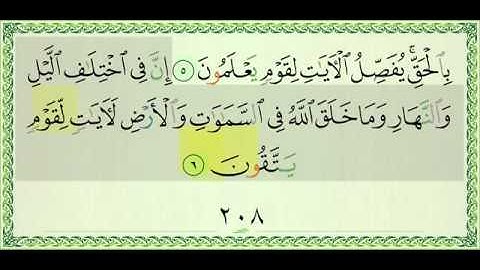 بِٱلْحَقِّ ۚ يُفَصِّلُ ٱلْءَايَٰتِ لِقَوْمٍ يَعْلَمُونَ ٥ إِنَّ فِى ٱخْتِلَٰفِ ٱلَّيْلِ
وَٱلنَّهَارِ وَمَا خَلَقَ ٱللَّهُ فِى ٱلسَّمَٰوَٰتِ وَٱلْأَرْضِ لَءَايَٰتٍ لِّقَوْمٍ
يَتَّقُونَ ٦
٢٠٨